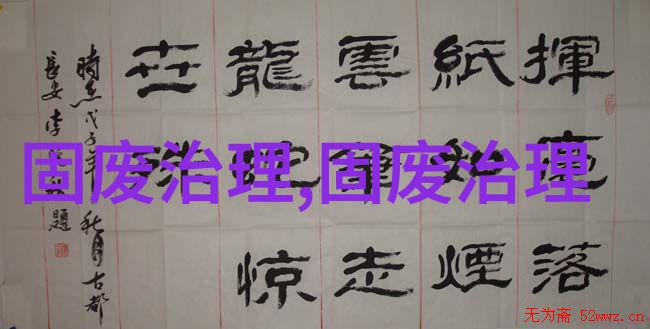 揮毫落
紙如煙
雲筆走
龍蛇惊
世
時在戊子年秋月古都
長安李題
固废治理,固废治理
无为斋 52wwz.cn